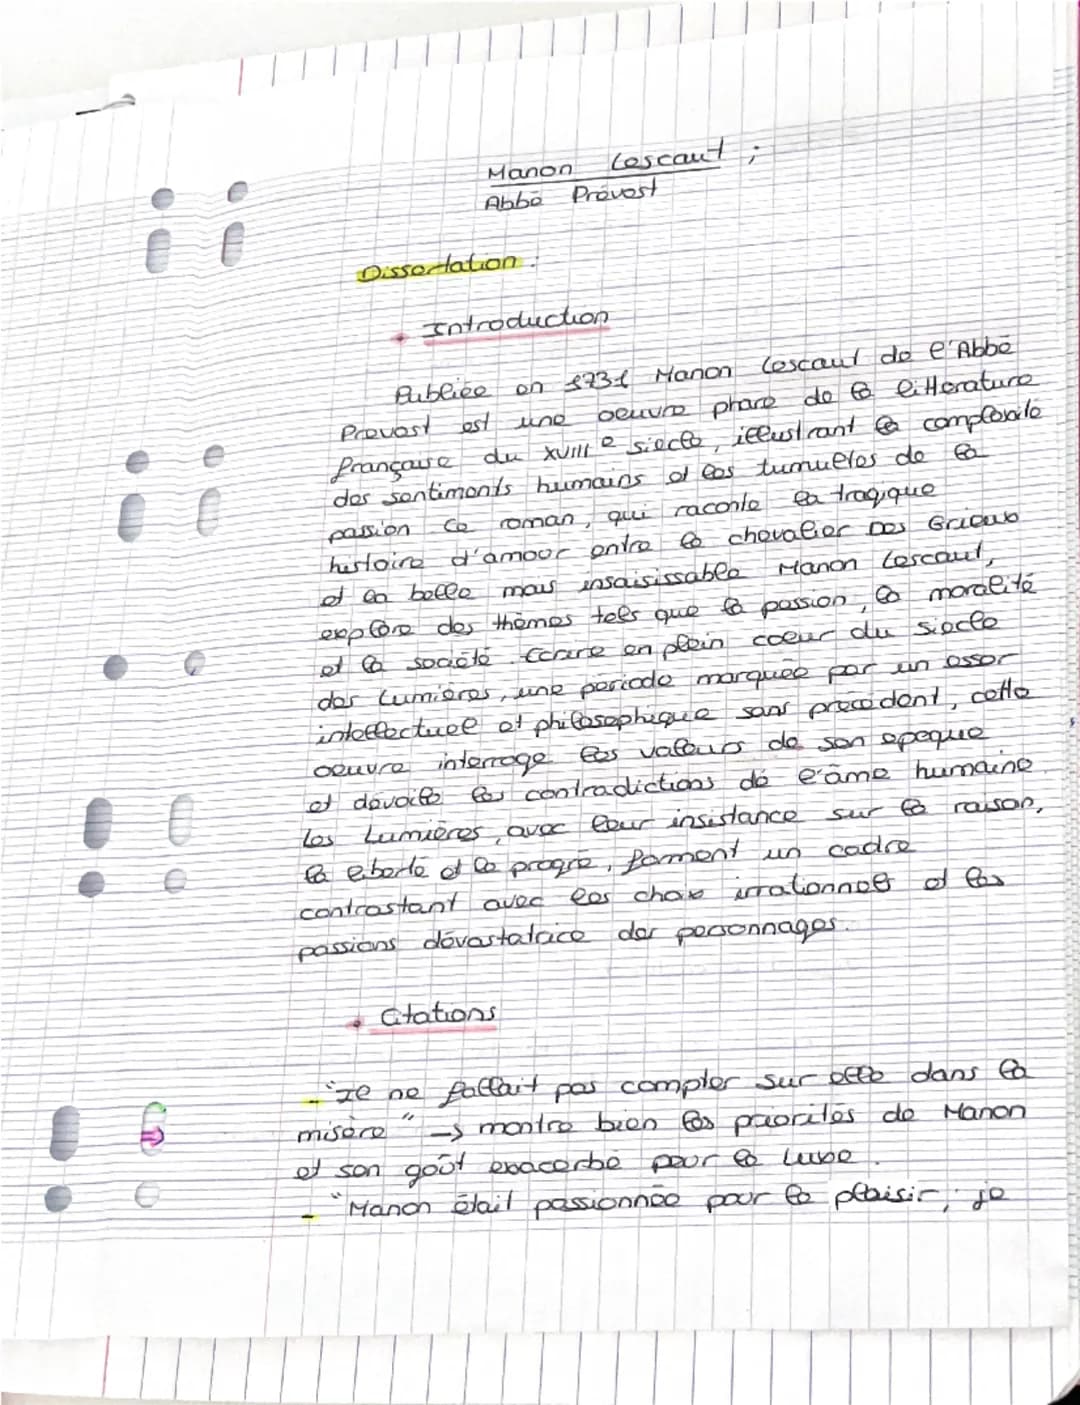 Manon Lescaut ;
Abbé Prévost
Dissertation :
Introduction
Publiée en 1731 Manon Lescaut de l'Abbé
Prevost est une oeuvre phare de la littérature
française du XVIIIe siècle, illustrant la complexité
des sentiments humains et les tumueltes de la
passion Ce roman, qui raconte la tragique
histoire d'amour entre le chevalier Des Grieux
et la belle mais insaisissable Manon Lescaut,
explore des thèmes tels que la passion, la moralité
et la société. Ecrire en plein coeur du siecle
des Lumières, une periode marquée par un essor
intellectuel et philosophique sans precedent, cette
oeuvre interroge les valeurs de son epeque
et dévoile les contradictions de l'âme humaine.
Les Lumières, avec leur insistance sur la raison,
la liberté et le progrè, forment un cadre
contrastant avec les choix irrationnels et les
passions dévastatrice des personnages.
Citations
- "Il ne fallait pas compter sur elle dans la
misère" → montre bien les priorités de Manon
et son goût exacerbé pour le luxe.
- "Manon était passionnée pour le plaisir, je